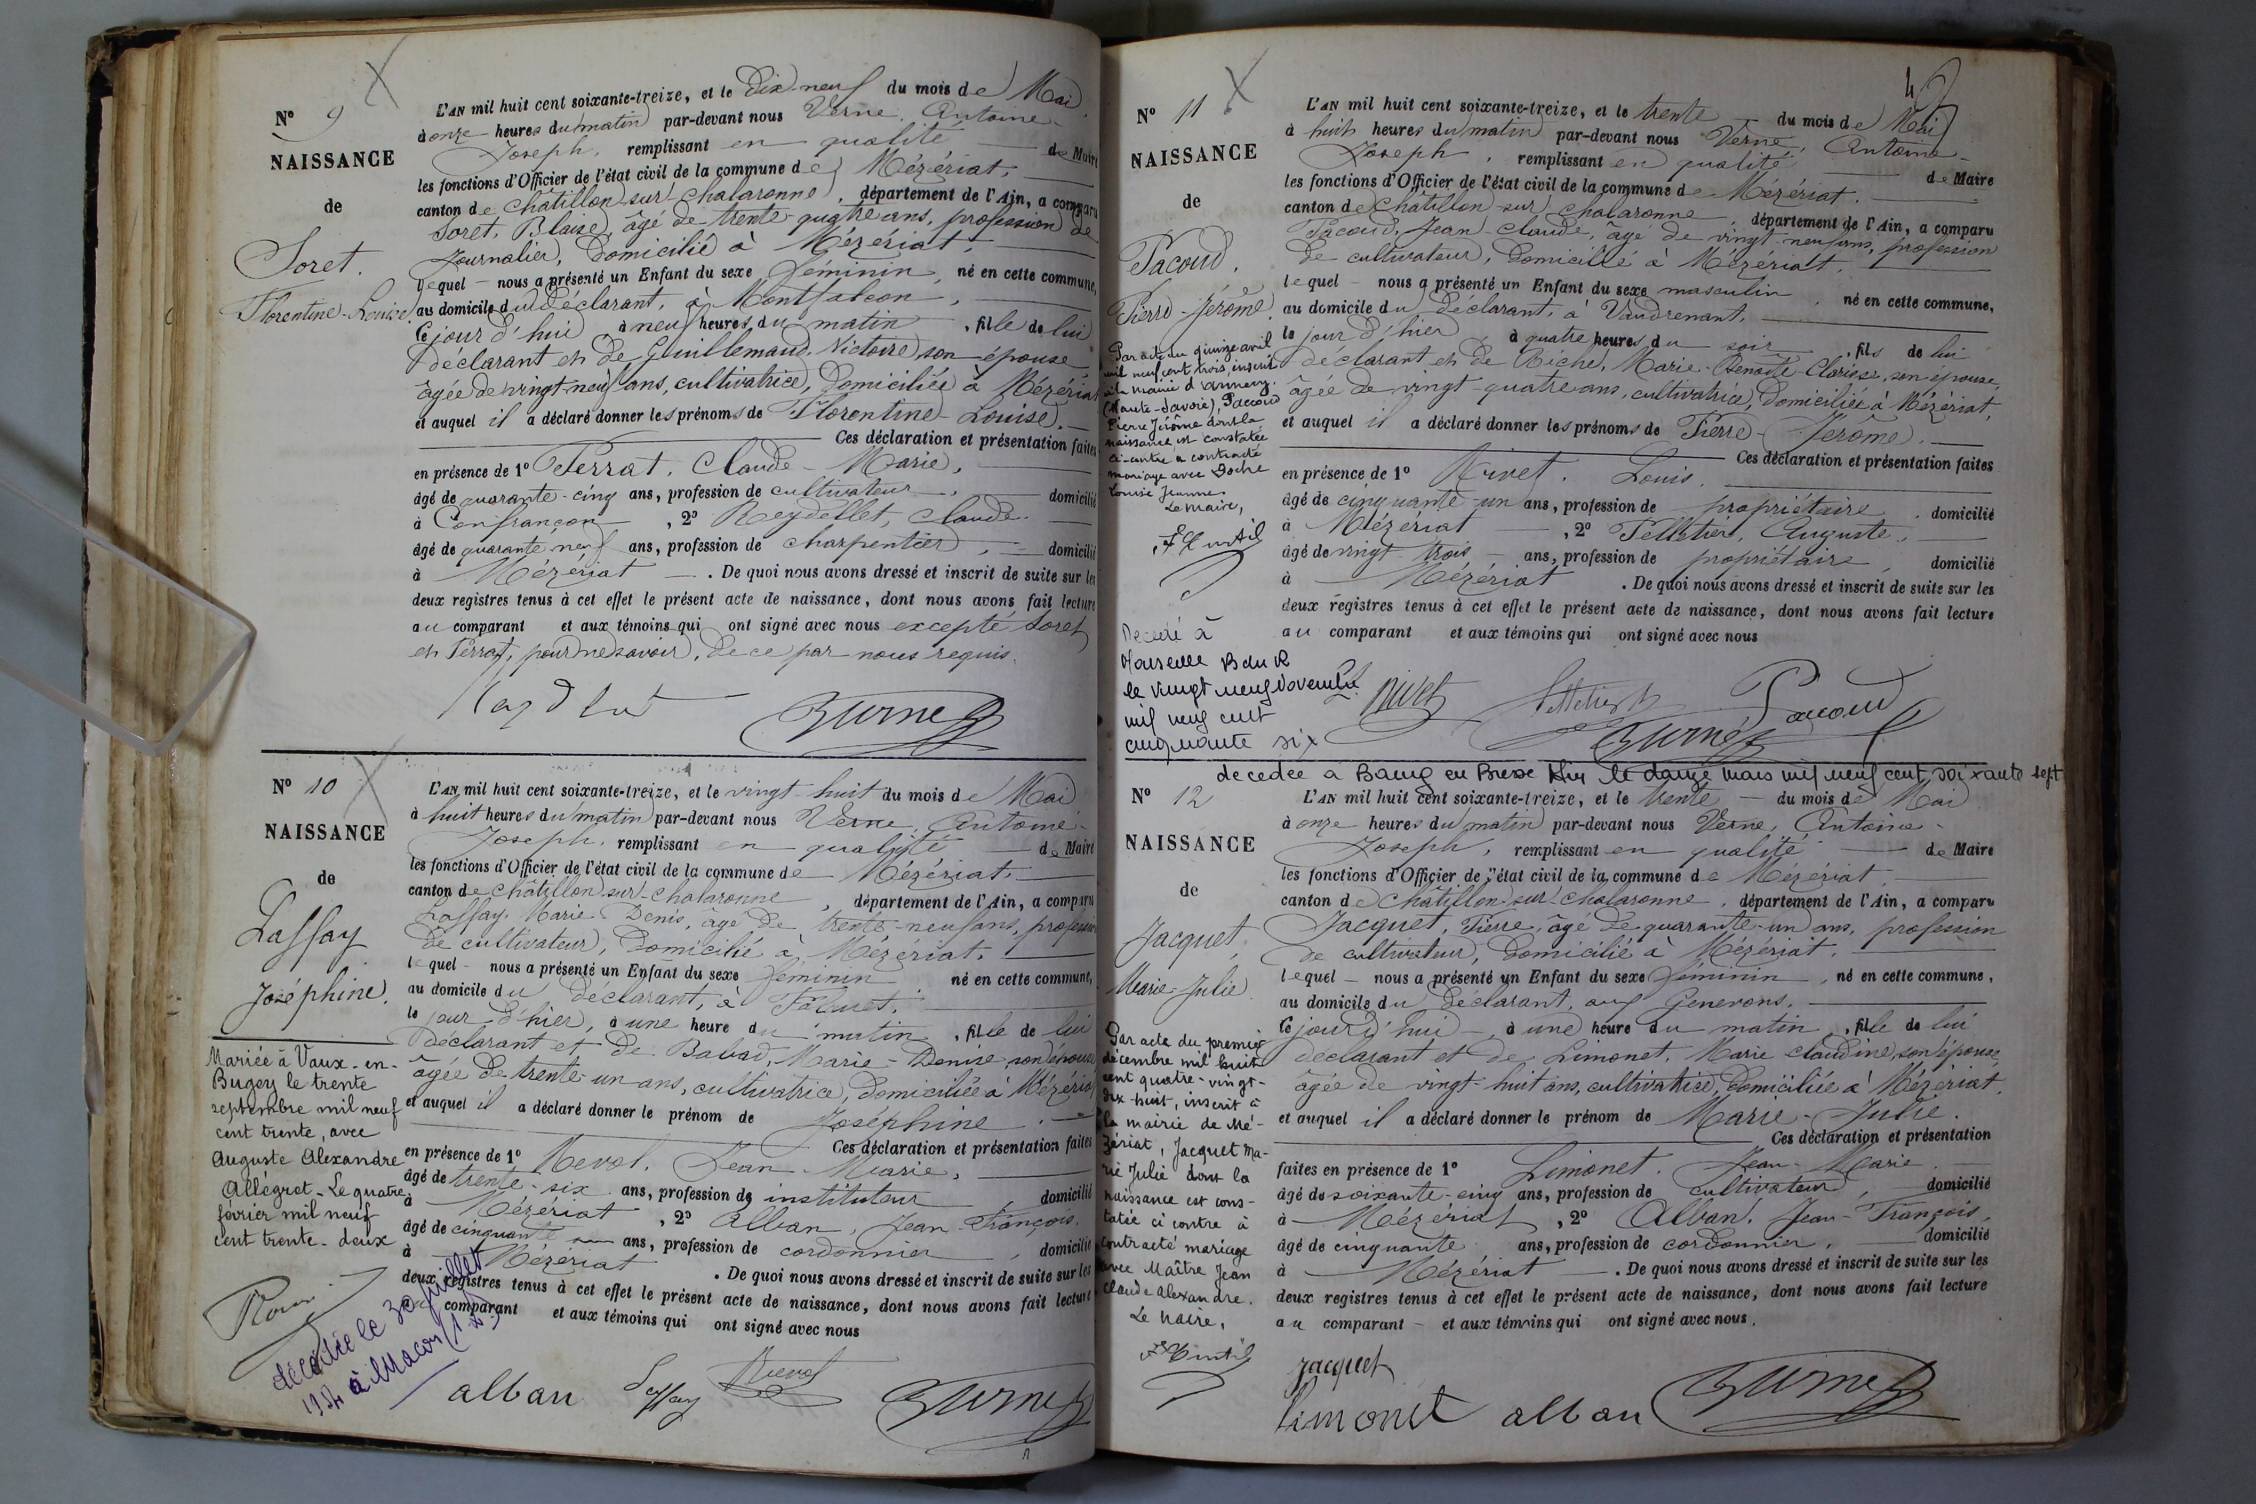 Nº 9
NAISSANCE
de
Soret.
Florentine-Louise
L'AN mil huit cent soixante-treize, et le Dix-neuf du mois de Mai
à onze heures du matin par-devant nous Verne, Antoine-
Joseph, remplissant en qualité de Maire
les fonctions d'Officier de l'état civil de la commune de Mézériat,
canton de Châtillon-sur-Chalaronne, département de l'Ain, a comparu
Soret, Blaise, âgé de trente-quatre ans, profession de
Journalier, Domicilié à Mézériat.
lequel nous a présenté un Enfant du sexe féminin, né en cette commune,
au domicile du déclarant, à Montfalcon,
ce jour d'hui à neuf heures du matin, fille de lui
déclarant et de Guillemaud, Victoire, son épouse
âgée de vingt-neuf ans, cultivatrice, Domiciliée à Mézériat
et auquel il a déclaré donner les prénoms de Florentine-Louise.
Ces déclaration et présentation faites
en présence de 1º Perrat, Claude-Marie,
âgé de quarante-cinq ans, profession de cultivateur, domicilié
à Confrançon, 2º Reydellet, Claude
âgé de quarante-neuf ans, profession de charpentier, domicilié
à Mézériat. De quoi nous avons dressé et inscrit de suite sur les
deux registres tenus à cet effet le présent acte de naissance, dont nous avons fait lecture
au comparant et aux témoins qui ont signé avec nous excepté Soret
et Perrat, pour ne savoir, de ce par nous requis.
Verne
Nº 10
NAISSANCE
de
Laffay
Joséphine.
Mariée à Vaux-en-
Bugey le trente
septembre mil neuf
cent trente, avec
Auguste Alexandre
Allegret - Le quatre
février mil neuf
cent trente-deux
décédée le 30 juillet
à Macon
L'AN mil huit cent soixante-treize, et le vingt-huit du mois de Mai
à huit heures du matin par-devant nous Verne, Antoine-
Joseph, remplissant en qualité de Maire
les fonctions d'Officier de l'état civil de la commune de Mézériat,
canton de Châtillon-sur-Chalaronne, département de l'Ain, a comparu
Laffay, Marie-Denis, âgé de trente-neuf ans, profession
de cultivateur, domicilié à Mézériat.
lequel nous a présenté un Enfant du sexe féminin né en cette commune,
au domicile du déclarant, à
le jour d'hier, à une heure du matin, fille de lui
déclarant et de Babad, Marie-Denise, son épouse
âgée de trente-un ans, cultivatrice, domiciliée à Mézériat
et auquel il a déclaré donner le prénom de Joséphine.
Ces déclaration et présentation faites
en présence de 1º Revol, Jean-Marie,
âgé de trente-six ans, profession de instituteur, domicilié
à Mézériat, 2º Alban, Jean-François.
âgé de cinquante ans, profession de cordonnier, domicilié
à Mézériat. De quoi nous avons dressé et inscrit de suite sur les
deux registres tenus à cet effet le présent acte de naissance, dont nous avons fait lecture
au comparant et aux témoins qui ont signé avec nous
alban Laffay Revol Verne
Nº 11
NAISSANCE
de
Pacoud,
Pierre-Jérôme
Par acte du quinze avril
mil neuf cent trois, inscrit
à la mairie d'Annecy
(Haute-Savoie), Paccoud
Pierre Jérôme dont la
naissance est constatée
ci-contre a contracté
mariage avec Doche
Louise Jeanne
Le Maire,
Décédé à
Marseille B du R
le vingt neuf novembre
mil neuf cent
cinquante six
L'AN mil huit cent soixante-treize, et le trente du mois de Mai
à huit heures du matin par-devant nous Verne, Antoine-
Joseph, remplissant en qualité de Maire
les fonctions d'Officier de l'état civil de la commune de Mézériat.
canton de Châtillon-sur-Chalaronne, département de l'Ain, a comparu
Pacoud, Jean-Claude, âgé de vingt-neuf ans, profession
de cultivateur, domicilié à Mézériat.
lequel nous a présenté un Enfant du sexe masculin, né en cette commune,
au domicile du déclarant, à Vaudrenant.
le jour d'hier, à quatre heures du soir, fils de lui
déclarant et de Riche, Marie-Benoîte-Clarisse, son épouse,
âgée de vingt-quatre ans, cultivatrice, domiciliée à Mézériat,
et auquel il a déclaré donner les prénoms de Pierre-Jérôme.
Ces déclaration et présentation faites
en présence de 1º Rivet, Louis.
âgé de cinquante-un ans, profession de propriétaire, domicilié
à Mézériat, 2º Pelletier, Auguste,
âgé de vingt-trois ans, profession de propriétaire, domicilié
à Mézériat. De quoi nous avons dressé et inscrit de suite sur les
deux registres tenus à cet effet le présent acte de naissance, dont nous avons fait lecture
au comparant et aux témoins qui ont signé avec nous
Rivet Pelletier Pacoud
Verne
decedée a Bourg en Bresse Ain le douze mars mil neuf cent soixante sept
Nº 12
NAISSANCE
de
Jacquet,
Marie-Julie
Par acte du premier
décembre mil huit
cent quatre-vingt-
dix-huit, inscrit à
la mairie de Mé-
zériat, Jacquet Ma-
rie Julie dont la
naissance est cons-
tatée ci contre à
contracté mariage
avec Maître Jean
Claude Alexandre.
Le Maire,
L'AN mil huit cent soixante-treize, et le trente du mois de Mai
à onze heures du matin par-devant nous Verne, Antoine-
Joseph, remplissant en qualité de Maire
les fonctions d'Officier de l'état civil de la commune de Mézériat
canton de Châtillon-sur-Chalaronne, département de l'Ain, a comparu
Jacquet, Pierre, âgé de quarante-un ans, profession
de cultivateur, domicilié à Mézériat.
lequel nous a présenté un Enfant du sexe féminin, né en cette commune,
au domicile du déclarant, aux Genevons.
ce jour d'hui, à une heure du matin, fille de lui
déclarant et de Limonet, Marie Claudine, son épouse
âgée de vingt-huit ans, cultivatrice, domiciliée à Mézériat,
et auquel il a déclaré donner le prénom de Marie-Julie.
Ces déclaration et présentation
faites en présence de 1º Limonet, Jean-Marie
âgé de soixante-cinq ans, profession de cultivateur, domicilié
à Mézériat, 2º Alban, Jean-François,
âgé de cinquante ans, profession de cordonnier, domicilié
à Mézériat. De quoi nous avons dressé et inscrit de suite sur les
deux registres tenus à cet effet le présent acte de naissance, dont nous avons fait lecture
au comparant et aux témoins qui ont signé avec nous.
Jacquet
limonet alban Verne